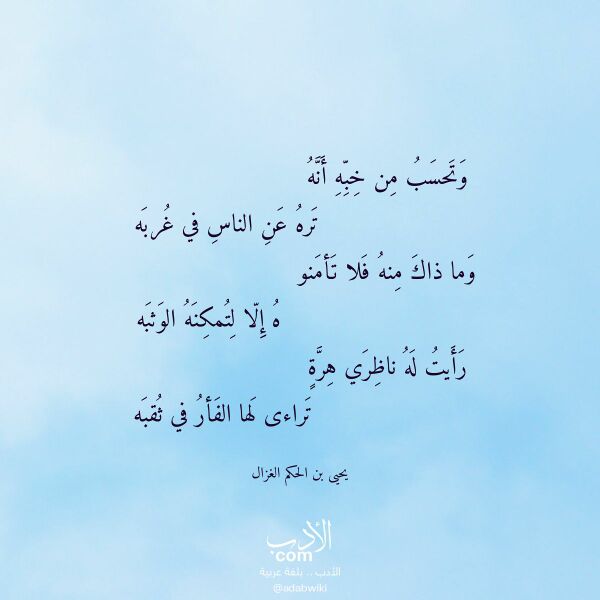 وَتَحسَبُ مِن خِبِّهِ أَنَّهُ
تَرهُ عَنِ الناسِ في غُربَه
وَما ذاكَ مِنهُ فَلا تَأمَنو
هُ إِلّا لِتُمكِنَهُ الوَثبَه
رَأَيتُ لَهُ ناظِرَي هِرَّةٍ
تَراءى لَها الفَأرُ في ثُقبَه
يحيى بن الحكم الغزال
الأدب
com
الأدب .. بلغة عربية
@adabwiki